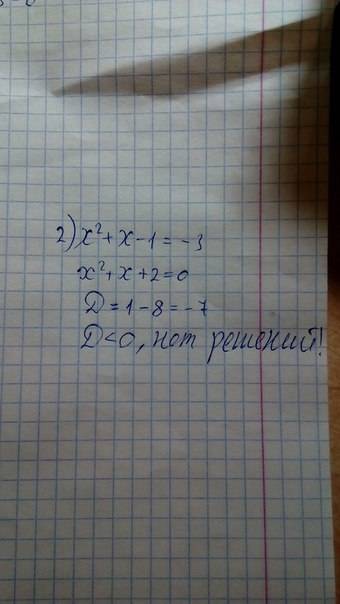 2) x² + x - 1 = -3
x² + x + 2 = 0
D = 1 - 8 = -7
D < 0, нет решений!